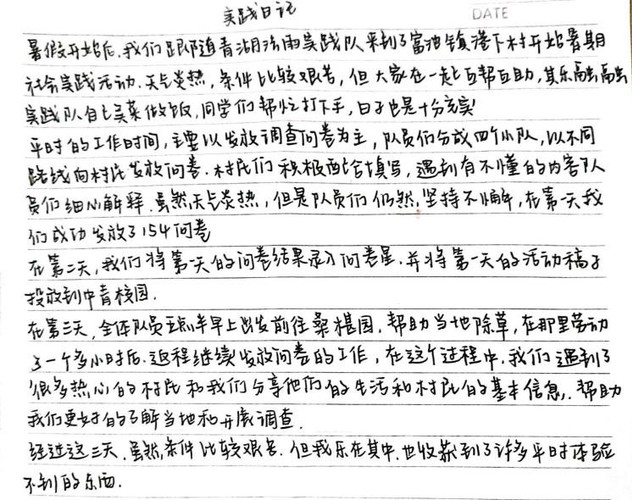 实践日记
DATE
暑假开始后,我们跟随青湖法雨实践队来到了富池镇港下村开始暑期
社会实践活动.天气炎热,条件比较艰苦,但大家在一起互帮互助,其乐融融
实践队自己买菜做饭,同学们帮忙打下手,日子也是十分充实!
平时的工作时间,主要以发放调查问卷为主,队员们分成四个小队,以不同
路线向村民发放问卷.村民们积极配合填写,遇到有不懂的内容队
员们细心解释.虽然天气炎热,但是队员们仍然坚持不懈,在第一天我
们成功发放了154问卷
在第二天,我们将第一天的问卷结果录入问卷星.并将第一天的活动稿子
投放到中青校园.
在第三天,全体队员五点半早上出发前往桑椹园,帮助当地除草,在那里劳动
了一个多小时后.返程继续发放问卷的工作,在这个过程中,我们遇到了
很多热心的村民和我们分享他们的生活和村民的基本信息,帮助
我们更好的了解当地和开展调查.
经过这三天.虽然条件比较艰苦.但我乐在其中.也收获到了许多平时体验
不到的东西.